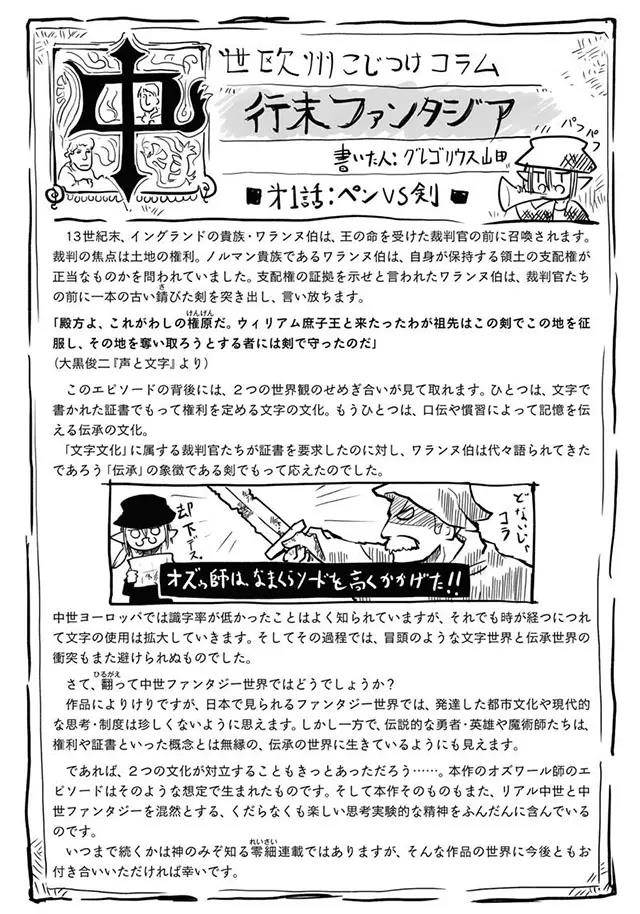 中世欧州こじつけコラム
行末ファンタジア
書いた人:グレゴリウス山田
パフパフ
■第1話:ペンVS剣■
13世紀末、イングランドの貴族・ワランヌ伯は、王の命を受けた裁判官の前に召喚されます。
裁判の焦点は土地の権利。ノルマン貴族であるワランヌ伯は、自身が保持する領土の支配権が
正当なものかを問われていました。支配権の証拠を示せと言われたワランヌ伯は、裁判官たち
の前に一本の古い錆びた剣を突き出し、言い放ちます。
「殿方よ、これがわしの権原だ。ウィリアム庶子王と来たったわが祖先はこの剣でこの地を征
服し、その地を奪い取ろうとする者には剣で守ったのだ」
(大黒俊二『声と文字』より)
このエピソードの背後には、2つの世界観のせめぎ合いが見て取れます。ひとつは、文字で
書かれた証書でもって権利を定める文字の文化。もうひとつは、口伝や慣習によって記憶を伝
える伝承の文化。
「文字文化」に属する裁判官たちが証書を要求したのに対し、ワランヌ伯は代々語られてきた
であろう「伝承」の象徴である剣でもって応えたのでした。
却下デース
どないじゃコラ
オズゥ師は、なまくらソードを高くかかげた!!
中世ヨーロッパでは識字率が低かったことはよく知られていますが、それでも時が経つにつれ
て文字の使用は拡大していきます。そしてその過程では、冒頭のような文字世界と伝承世界の
衝突もまた避けられぬものでした。
さて、翻って中世ファンタジー世界ではどうでしょうか?
作品によりけりですが、日本で見られるファンタジー世界では、発達した都市文化や現代的
な思考・制度は珍しくないように思えます。しかし一方で、伝説的な勇者・英雄や魔術師たちは、
権利や証書といった概念とは無縁の、伝承の世界に生きているようにも見えます。
であれば、2つの文化が対立することもきっとあっただろう……。本作のオズワール師のエ
ピソードはそのような想定で生まれたものです。そして本作そのものもまた、リアル中世と中
世ファンタジーを混然とする、くだらなくも楽しい思考実験的な精神をふんだんに含んでいる
のです。
いつまで続くかは神のみぞ知る零細連載ではありますが、そんな作品の世界に今後ともお
付き合いいただければ幸いです。